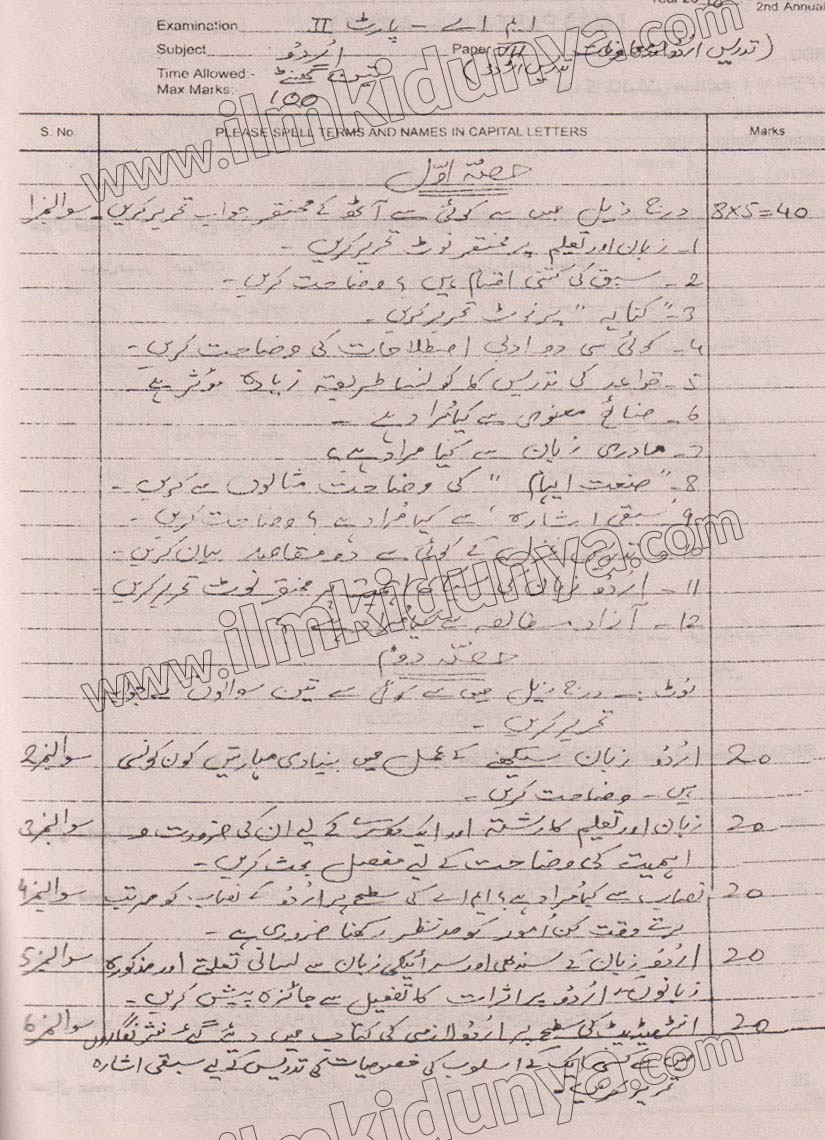 2nd Annual
Examination ایم اے - پارٹ II
Subject اردو Paper VII (تدریس اردو
Time Allowed:- تین گھنٹے (تدریس اردو)
Max Marks:- 100
S. No. PLEASE SPELL TERMS AND NAMES IN CAPITAL LETTERS Marks
حصّہ اوّل
سوال نمبر1 درج ذیل میں سے کوئی سے آٹھ کے مختصر جواب تحریر کریں۔ 8x5=40
1- زبان اور تعلیم پر مختصر نوٹ تحریر کریں۔
2- سبق کی کتنی اقسام ہیں؟ وضاحت کریں۔
3- "کنایہ" پر نوٹ تحریر کریں۔
4- کوئی سی دو ادبی اصطلاحات کی وضاحت کریں۔
5- قواعد کی تدریس کا کونسا طریقہ زیادہ مؤثر ہے۔
6- صنائع معنوی سے کیا مُراد ہے۔
7- مادری زبان سے کیا مراد ہے؟
8- "صنعت ایہام" کی وضاحت مثالوں سے کریں۔
9- "سبقی اشارہ" سے کیا مُراد ہے؟ وضاحت کریں۔
10- تدریس کے کوئی سے دو مقاصد بیان کریں۔
11- اُردُو زبان کی پر مختصر نوٹ تحریر کریں۔
12- آزاد مطالعہ سے کیا مُراد ہے؟
حصّہ دوم
نوٹ :- درج ذیل میں سے کوئی سے تین سوالوں کے جواب
تحریر کریں۔
سوال نمبر2 اُردُو زبان سیکھنے کے عمل میں بنیادی مہارتیں کون کونسی 20
ہیں۔ وضاحت کریں۔
سوال نمبر3 زبان اور تعلیم کا رشتہ اور ایک دوسرے کے لیے ان کی ضرورت و 20
اہمیت کی وضاحت کے لیے مفصل بحث کریں۔
سوال نمبر4 نصاب سے کیا مُراد ہے؟ ایم اے کی سطح پر اُردُو کے نصاب کو مرتب 20
کرتے وقت کن اُمور کو مدنظر رکھنا ضروری ہے۔
سوال نمبر5 اُردُو زبان کے سندھی اور سرائیکی زبان سے لسانی تعلق اور مذکورہ 20
زبانوں پر اُردُو پر اثرات کا تفصیل سے جائزہ پیش کریں۔
سوال نمبر6 انٹرمیڈیٹ کی سطح پر اُردُو لازمی کی کتاب میں دیئے گئے نثر نگاروں 20
میں سے کسی ایک کے اسلوب کی خصوصیات کی تدریس کے لیے سبقی اشارہ
تحریر کریں۔
www.ilmkidunya.com
www.ilmkidunya.com
www.ilmkidunya.com
www.ilmkidunya.com